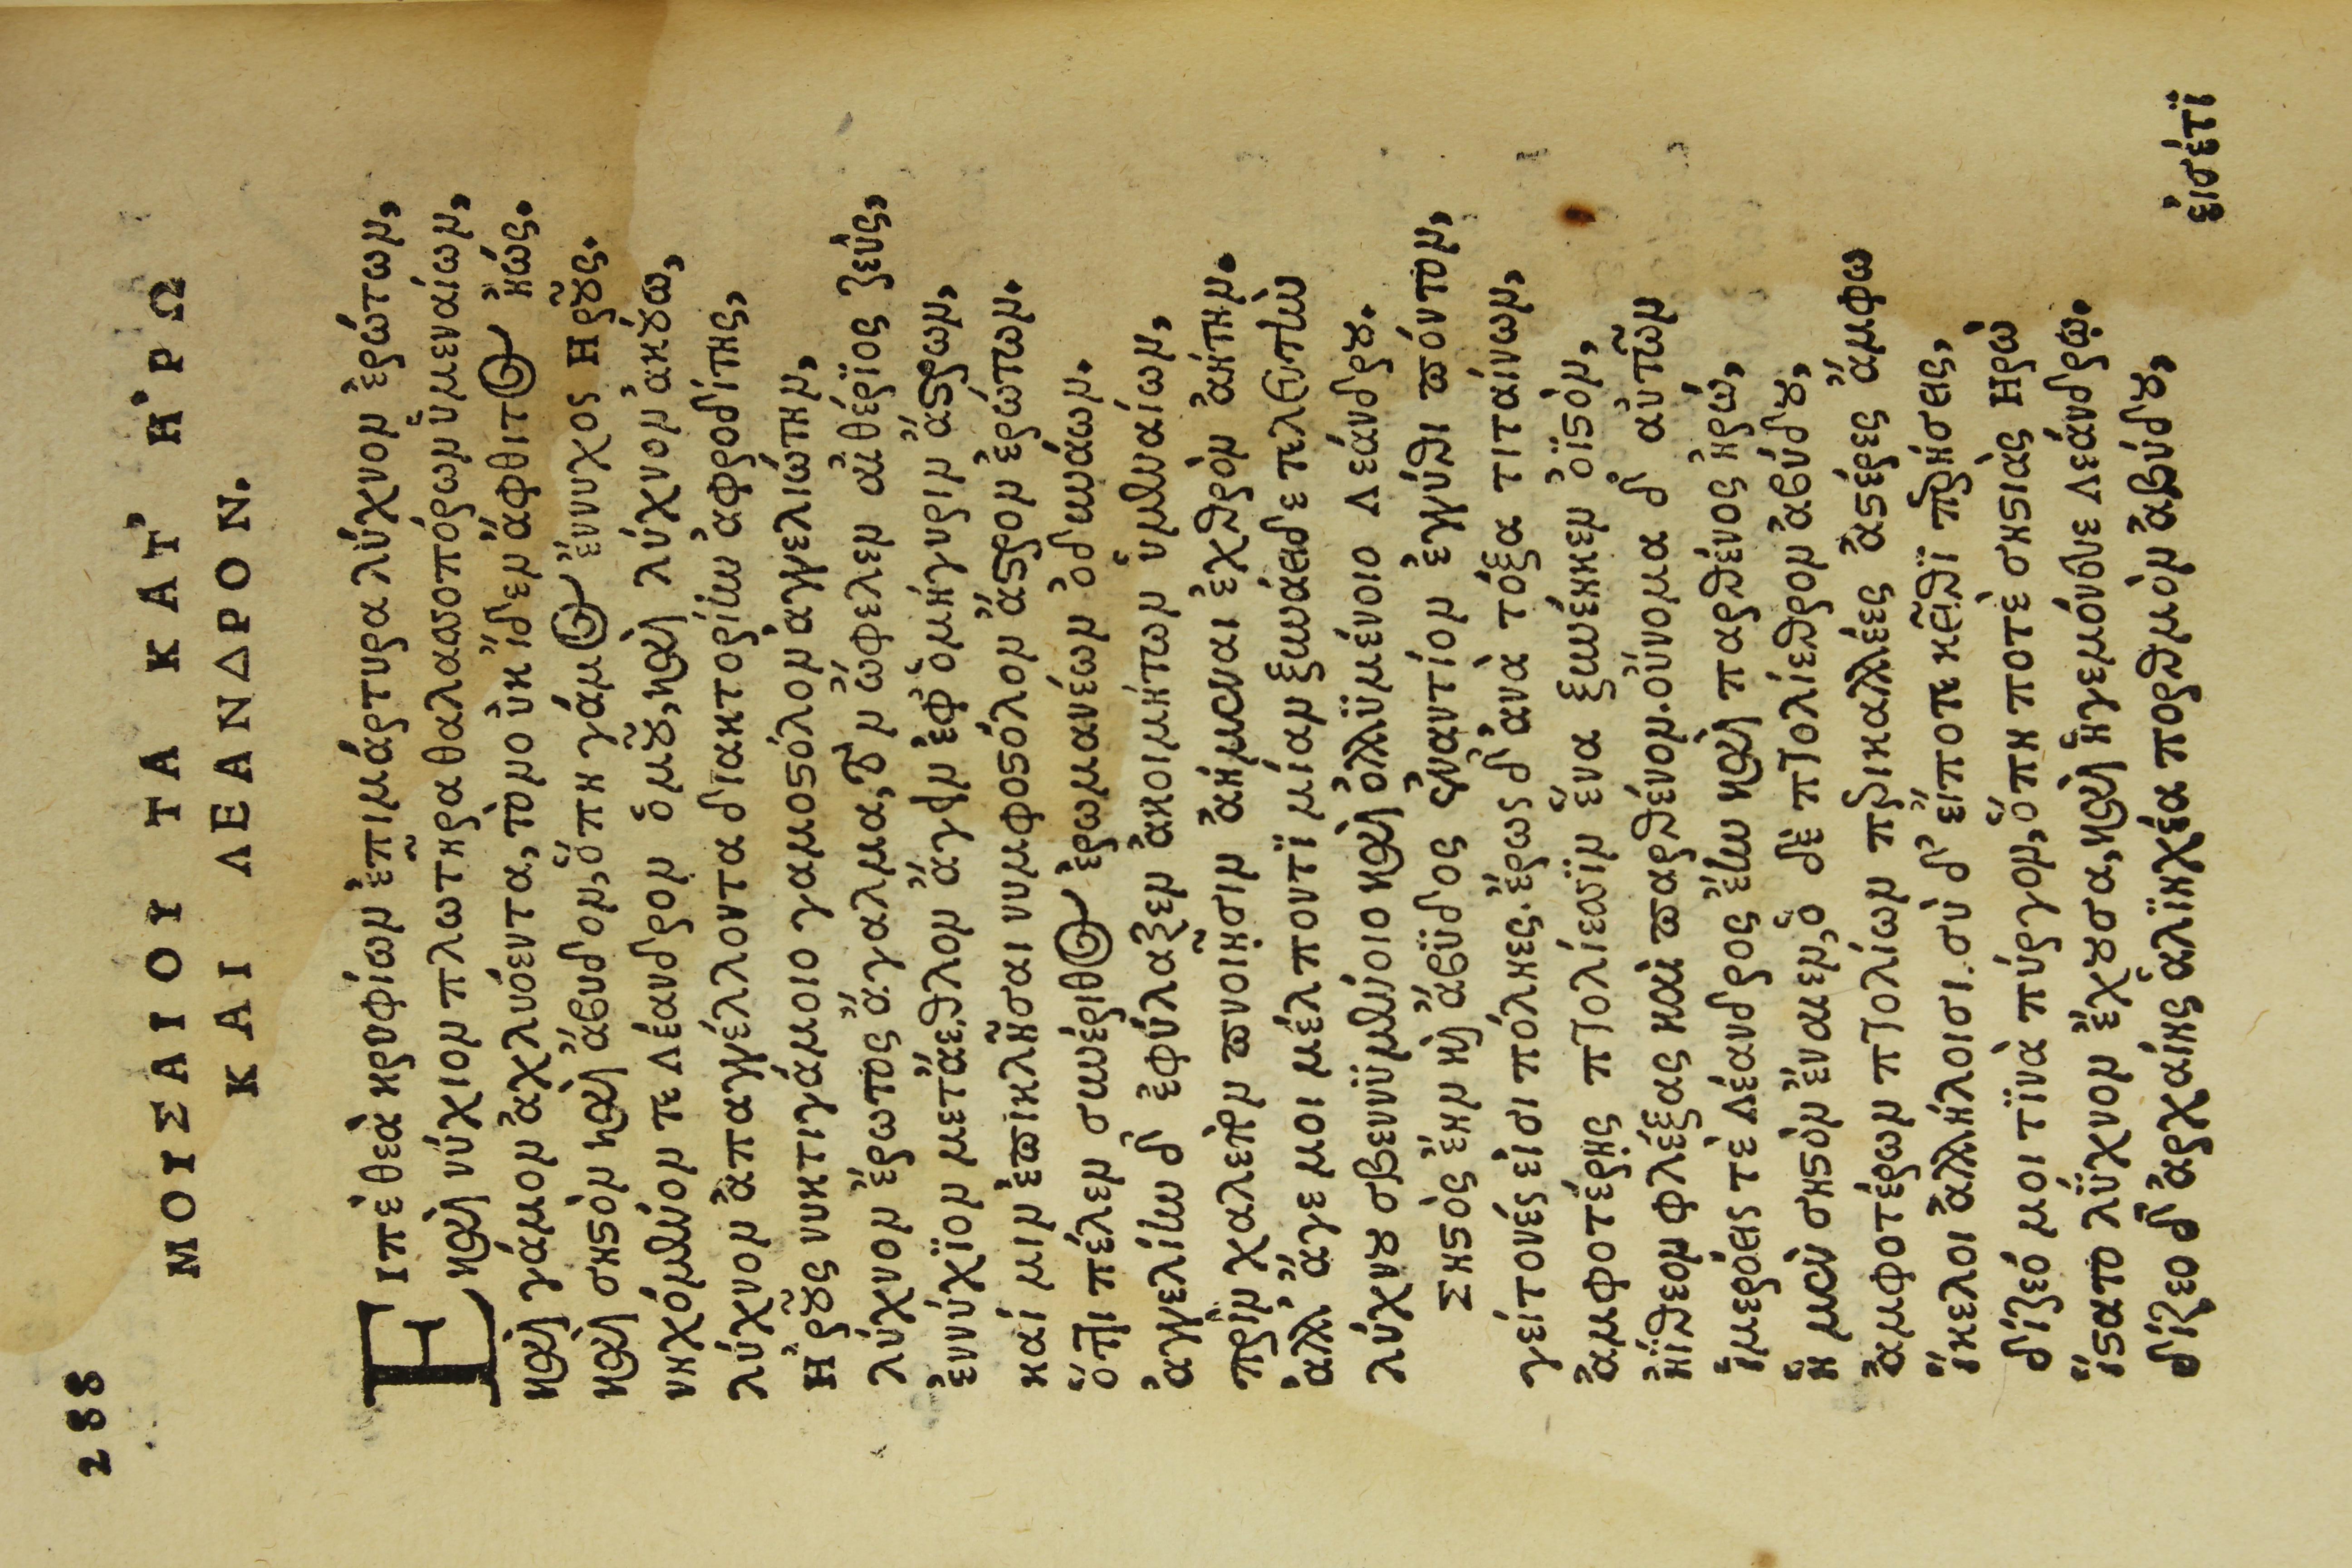 288
ΜΟΙΣΑΙΟΥ ΤΑ ΚΑΤ' Η'ΡΩ
ΚΑΙ ΛΕΑΝΔΡΟΝ.
Εἰπὲ θεὰ κρυφίων ἐπιμάρτυρα λύχνον ἐρώτων,
καὶ νύχιον πλωτῆρα θαλασσοπόρων ὑμεναίων,
καὶ γάμον ἀχλυόεντα, τὸν οὐκ ἴδεν ἄφθιτος ἠώς.
καὶ σηστὸν καὶ ἄβυδον, ὅπη γάμος ἔννυχος Ηροῦς.
νηχόμενόν τε Λέανδρον ὁμοῦ, καὶ λύχνον ἀκούω,
λύχνον ἀπαγγέλλοντα διακτορίην ἀφροδίτης,
Ἡροῦς νυκτιγάμοιο γαμοστόλον ἀγγελιώτην,
λύχνον ἔρωτος ἄγαλμα, τὸν ὤφελεν αἰθέρϊος ζεὺς,
ἐννύχϊον μετ' ἄεθλον ἄγειν ἐφ' ὁμήγυριν ἄστρων,
καί μιν ἐπικλῆσαι νυμφοστόλον ἄστρον ἐρώτων.
ὅττι πέλεν συνέριθος ἐρωμανέων ὀδυνάων.
ἀγγελίην δ' ἐφύλαξεν ἀκοιμήτων ὑμεναίων,
πρὶν χαλεπὸν πνοιῇσιν ἀήμεναι ἐχθρὸν ἀήτην.
ἀλλ' ἄγε μοι μέλποντϊ μίαν ξυνάειδε τελευτὴν
λύχνου σβεννϋμένοιο καὶ ὀλλϋμένοιο Λεάνδρου.
Σηστὸς ἔην καὶ ἄβϋδος ἐναντίον ἐγγύθι πόντου,
γείτονές εἰσι πόληες. ἔρως δ' ἀνὰ τόξα τιταίνων,
ἀμφοτέρῃς πτολίεσσϊν ἕνα ξυνέηκεν ὀϊστὸν,
ἠΐθεον φλέξας καὶ παρθένον. οὔνομα δ' αὐτῶν
ἱμερόεις τὲ Λέανδρος ἔην καὶ παρθένος ἡρώ,
ἡ μὲν σηστὸν ἔναιεν, ὁ δὲ πτολίεθρον ἀβύδου,
ἀμφοτέρων πτολίων περικαλλέες ἀστέρες ἄμφω
ἴκελοι ἀλλήλοισι. σὺ δ' εἴποτε κεῖθϊ περήσεις,
δίζεό μοι τϊνὰ πύργον, ὅπη ποτὲ σηστιὰς Ηρὼ
ἵστατο λύχνον ἔχουσα, καὶ ἡγεμόνευε Λεάνδρῳ.
δίζεο δ' ἀρχαίης ἁλϊηχέα πορθμὸν ἀβύδου,
εἰσέτϊ